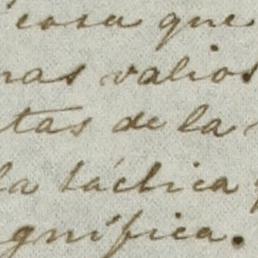 cosa que
mas valios
tas de la
la táctica
gnífica.